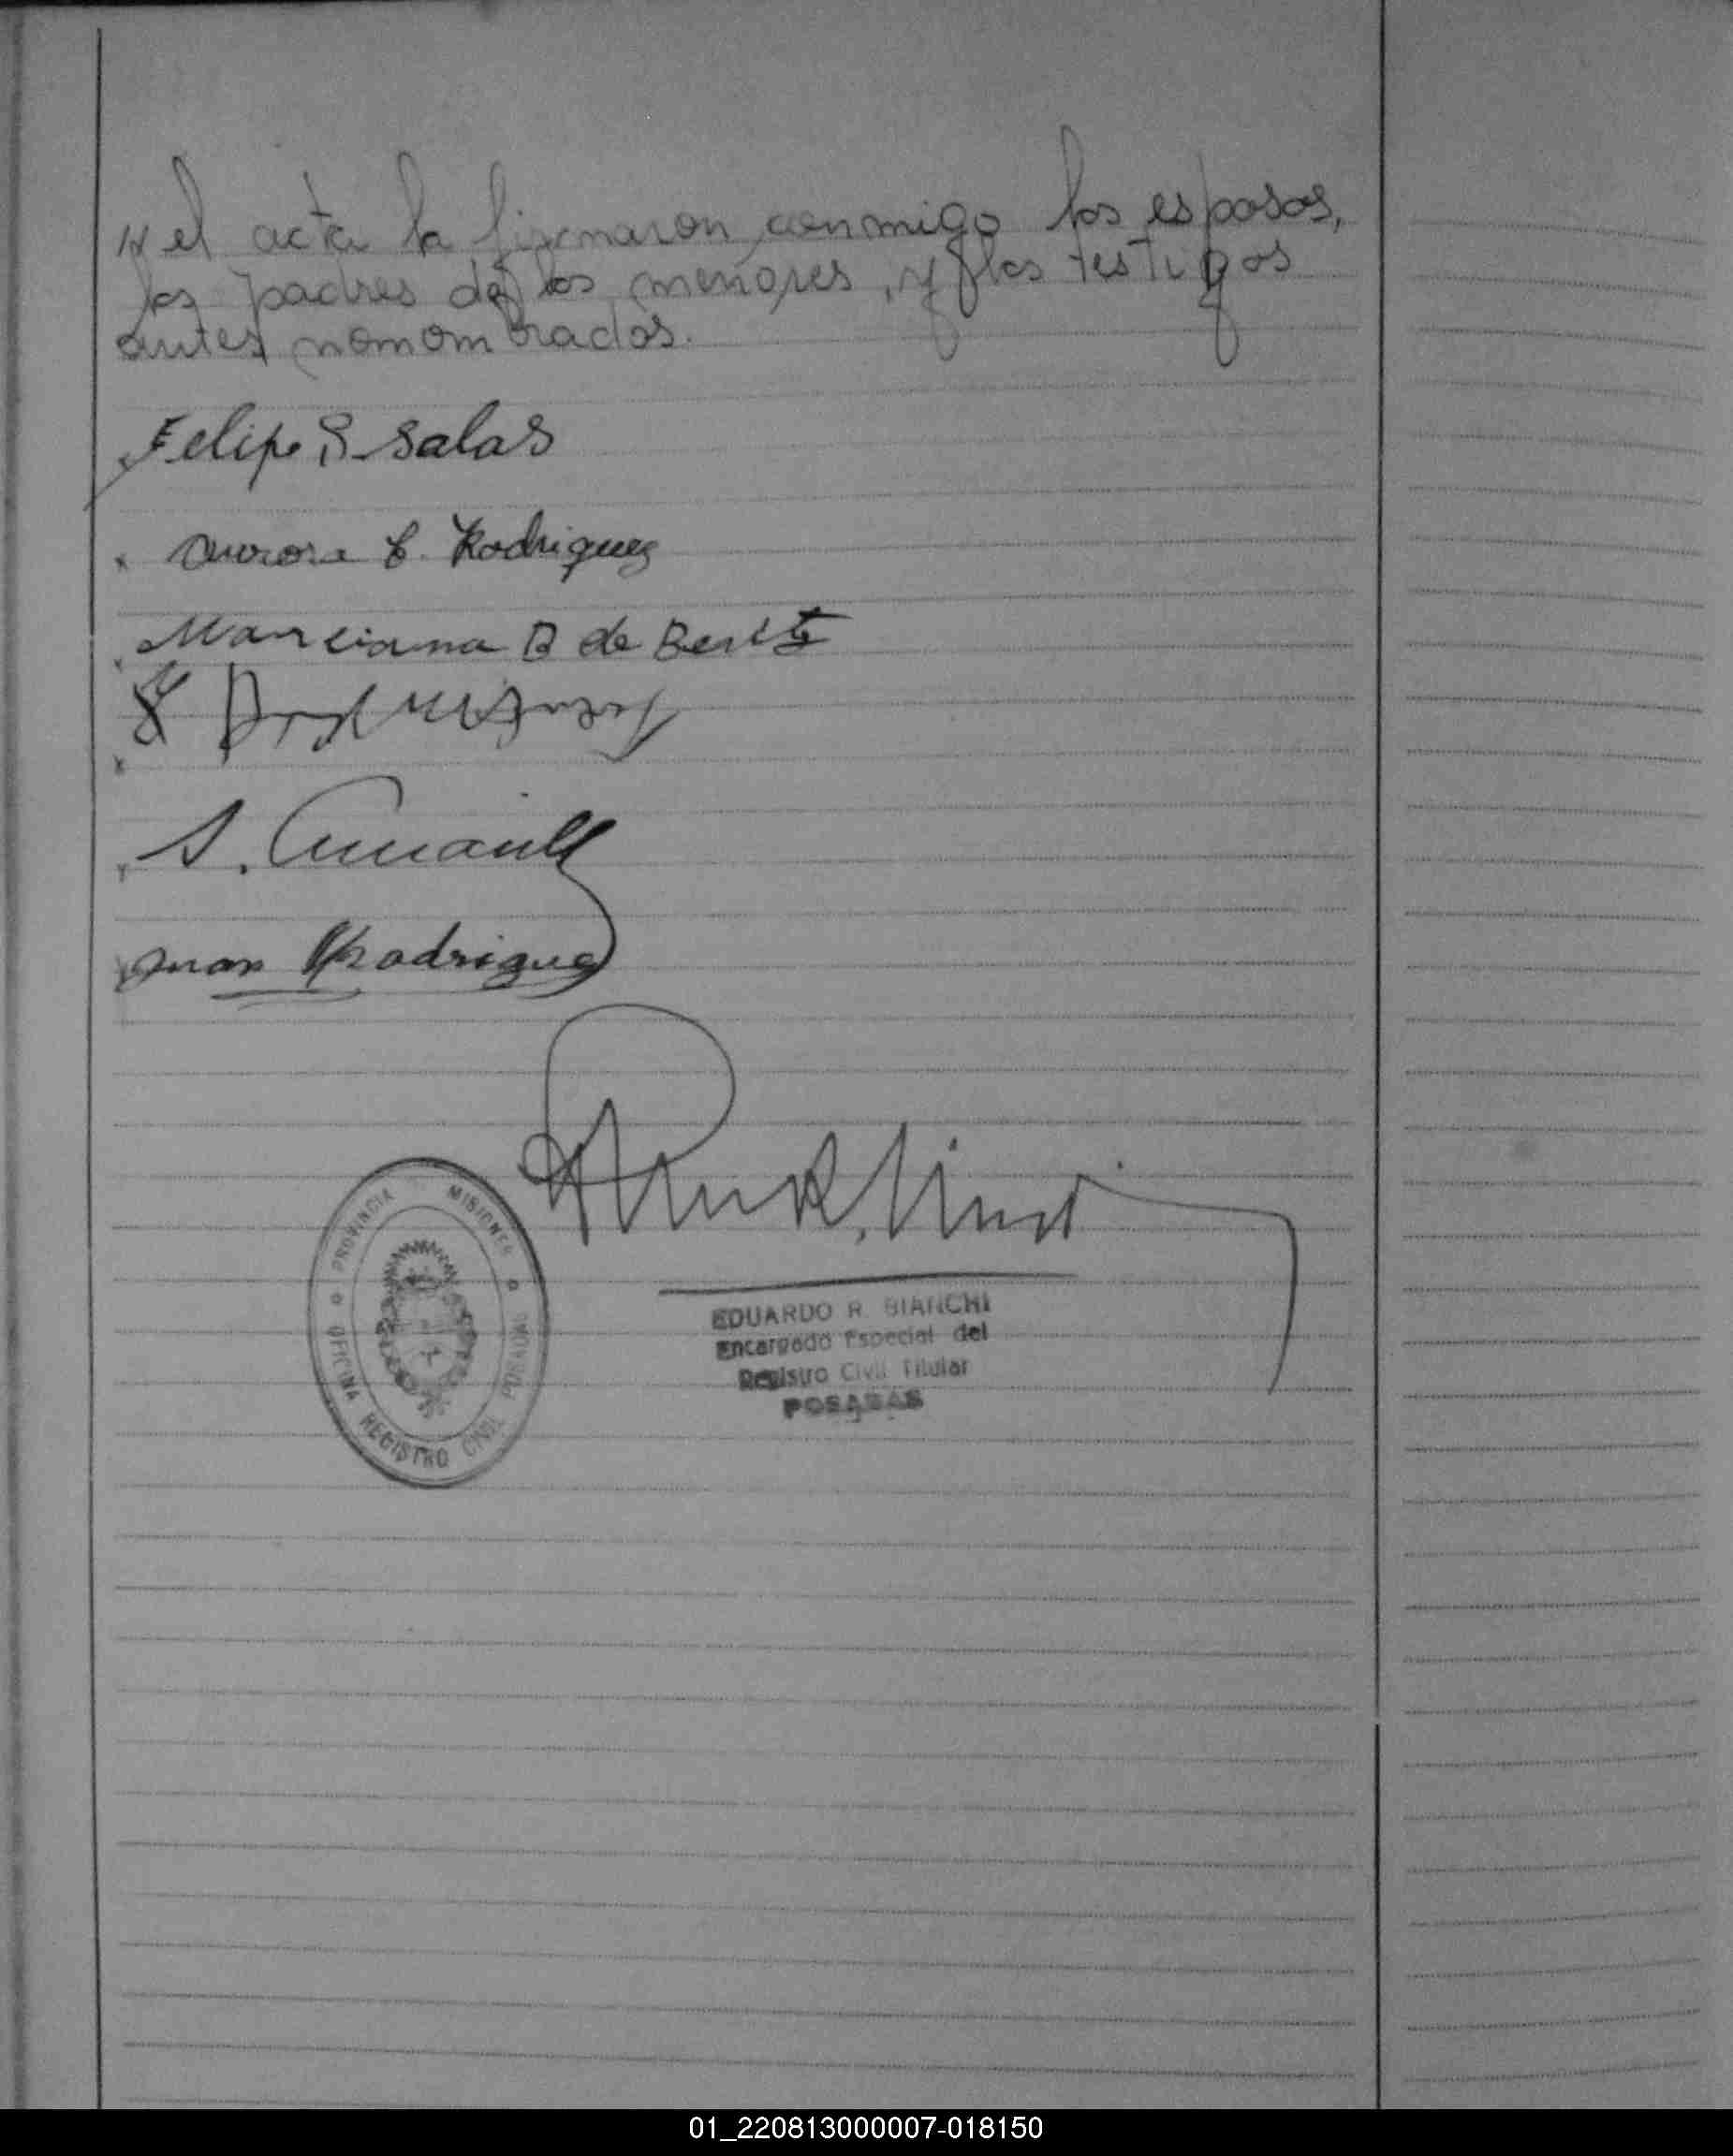 el acta la firmaron conmigo los esposos,
los padres de los menores, y los testigos
antes nomombrados.
Felipe S. Salas
Aurora C. Rodriguez
Marciana B de Benit
S.
Juan Rodriguez
PROVINCIA MISIONES
OFICINA REGISTRO CIVIL POSADAS
EDUARDO R. BIANCHI
Encargado Especial del
Registro Civil Titular
POSADAS
01_220813000007-018150